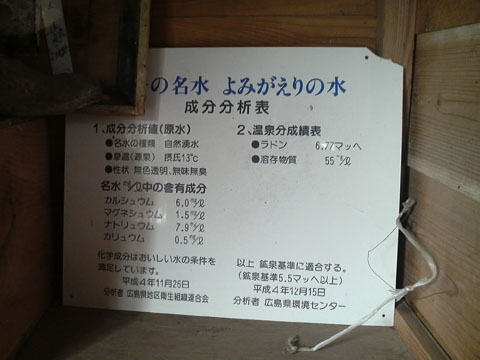 の名水 よみがえりの水
成分分析表
1、成分分析値(原水)
●名水の種類 自然湧水
●泉温(源泉) 摂氏13℃
●性状 無色透明、無味無臭
名水㎎/ℓ中の含有成分
カルシュウム 6.0㎎/ℓ
マグネシュウム 1.5㎎/ℓ
ナトリュウム 7.9㎎/ℓ
カリュウム 0.5㎎/ℓ
化学成分はおいしい水の条件を
満足しています。
平成4年11月26日
分析者 広島県地区衛生組織連合会
2、温泉分成績表
●ラドン 6.77マッヘ
●溶存物質 55㎎/ℓ
以上 鉱泉基準に適合する。
(鉱泉基準5.5マッヘ以上)
平成4年12月15日
分析者 広島県環境センター